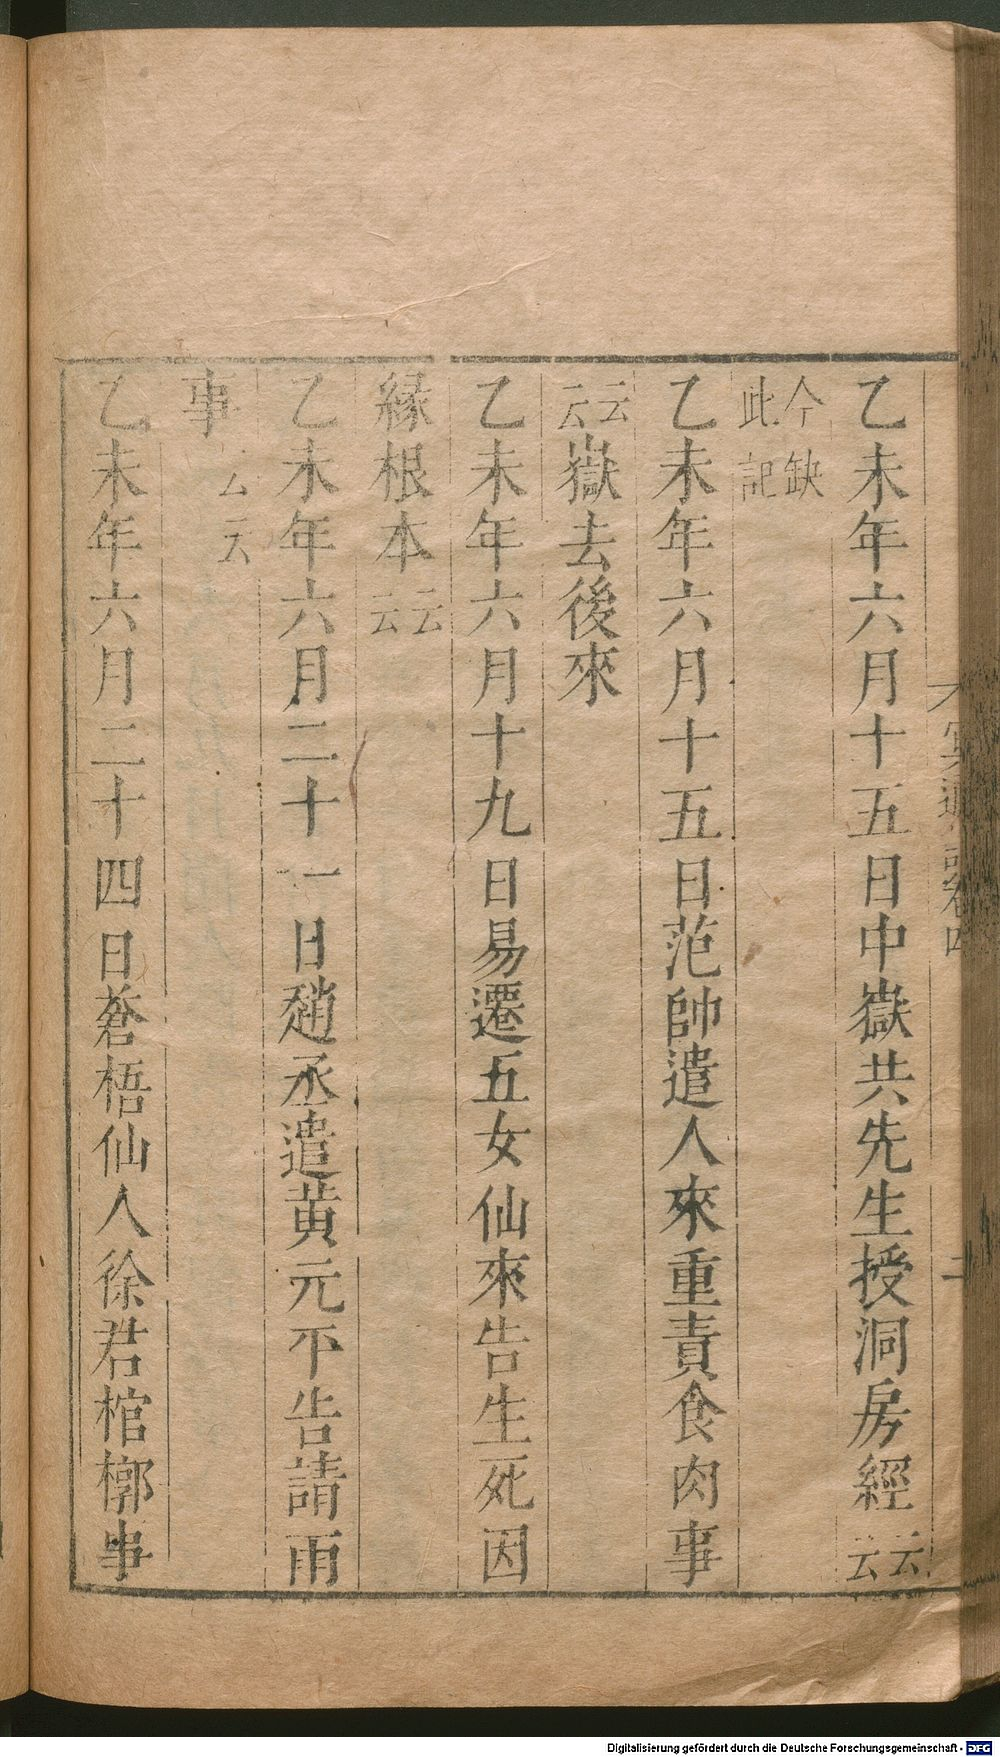 乙未年六月十五日中嶽共先生授洞房經云云
今缺此記
乙未年六月十五日范帥遣人來重責食肉事
云云嶽去後來
乙未年六月十九日易遷五女仙來告生死因
縁根本云云
乙未年六月二十一日趙丞遣黄元平告請雨
事云云
乙未年六月二十四日蒼梧仙人徐君棺槨事
Digitalisierung gefördert durch die Deutsche Forschungsgemeinschaft - DFG